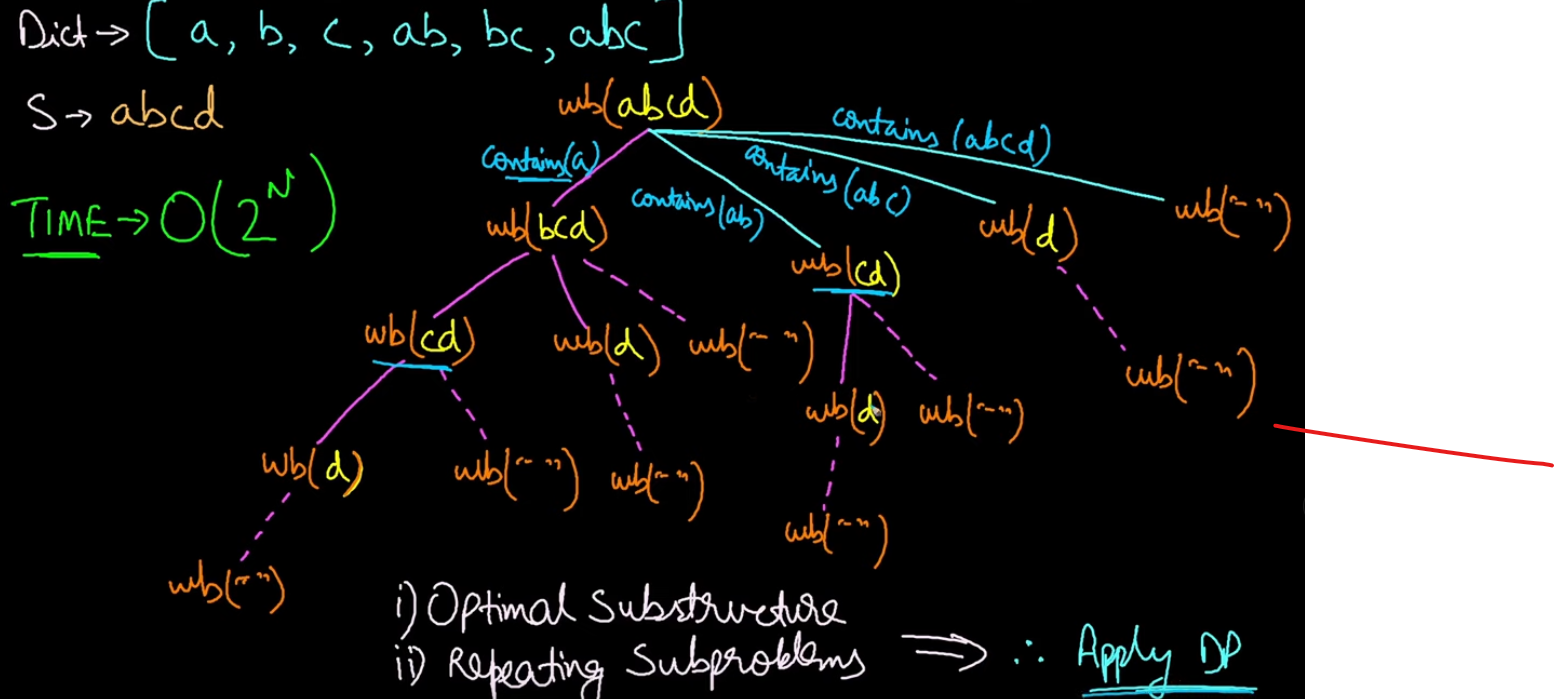 Dict → [ a, b, c, ab, bc, abc ]
S → abcd
TIME → O(2^N)
wb(abcd)
contains(a)
contains(ab)
contains(abc)
contains(abcd)
wb(bcd)
wb(cd)
wb(d)
wb(" ")
wb(cd)
wb(d)
wb(" ")
wb(d)
wb(" ")
wb(" ")
wb(d)
wb(" ")
wb(" ")
wb(" ")
wb(" ")
wb(" ")
wb(" ")
i) Optimal Substructure
ii) Repeating Subproblems ⇒ ∴ Apply DP